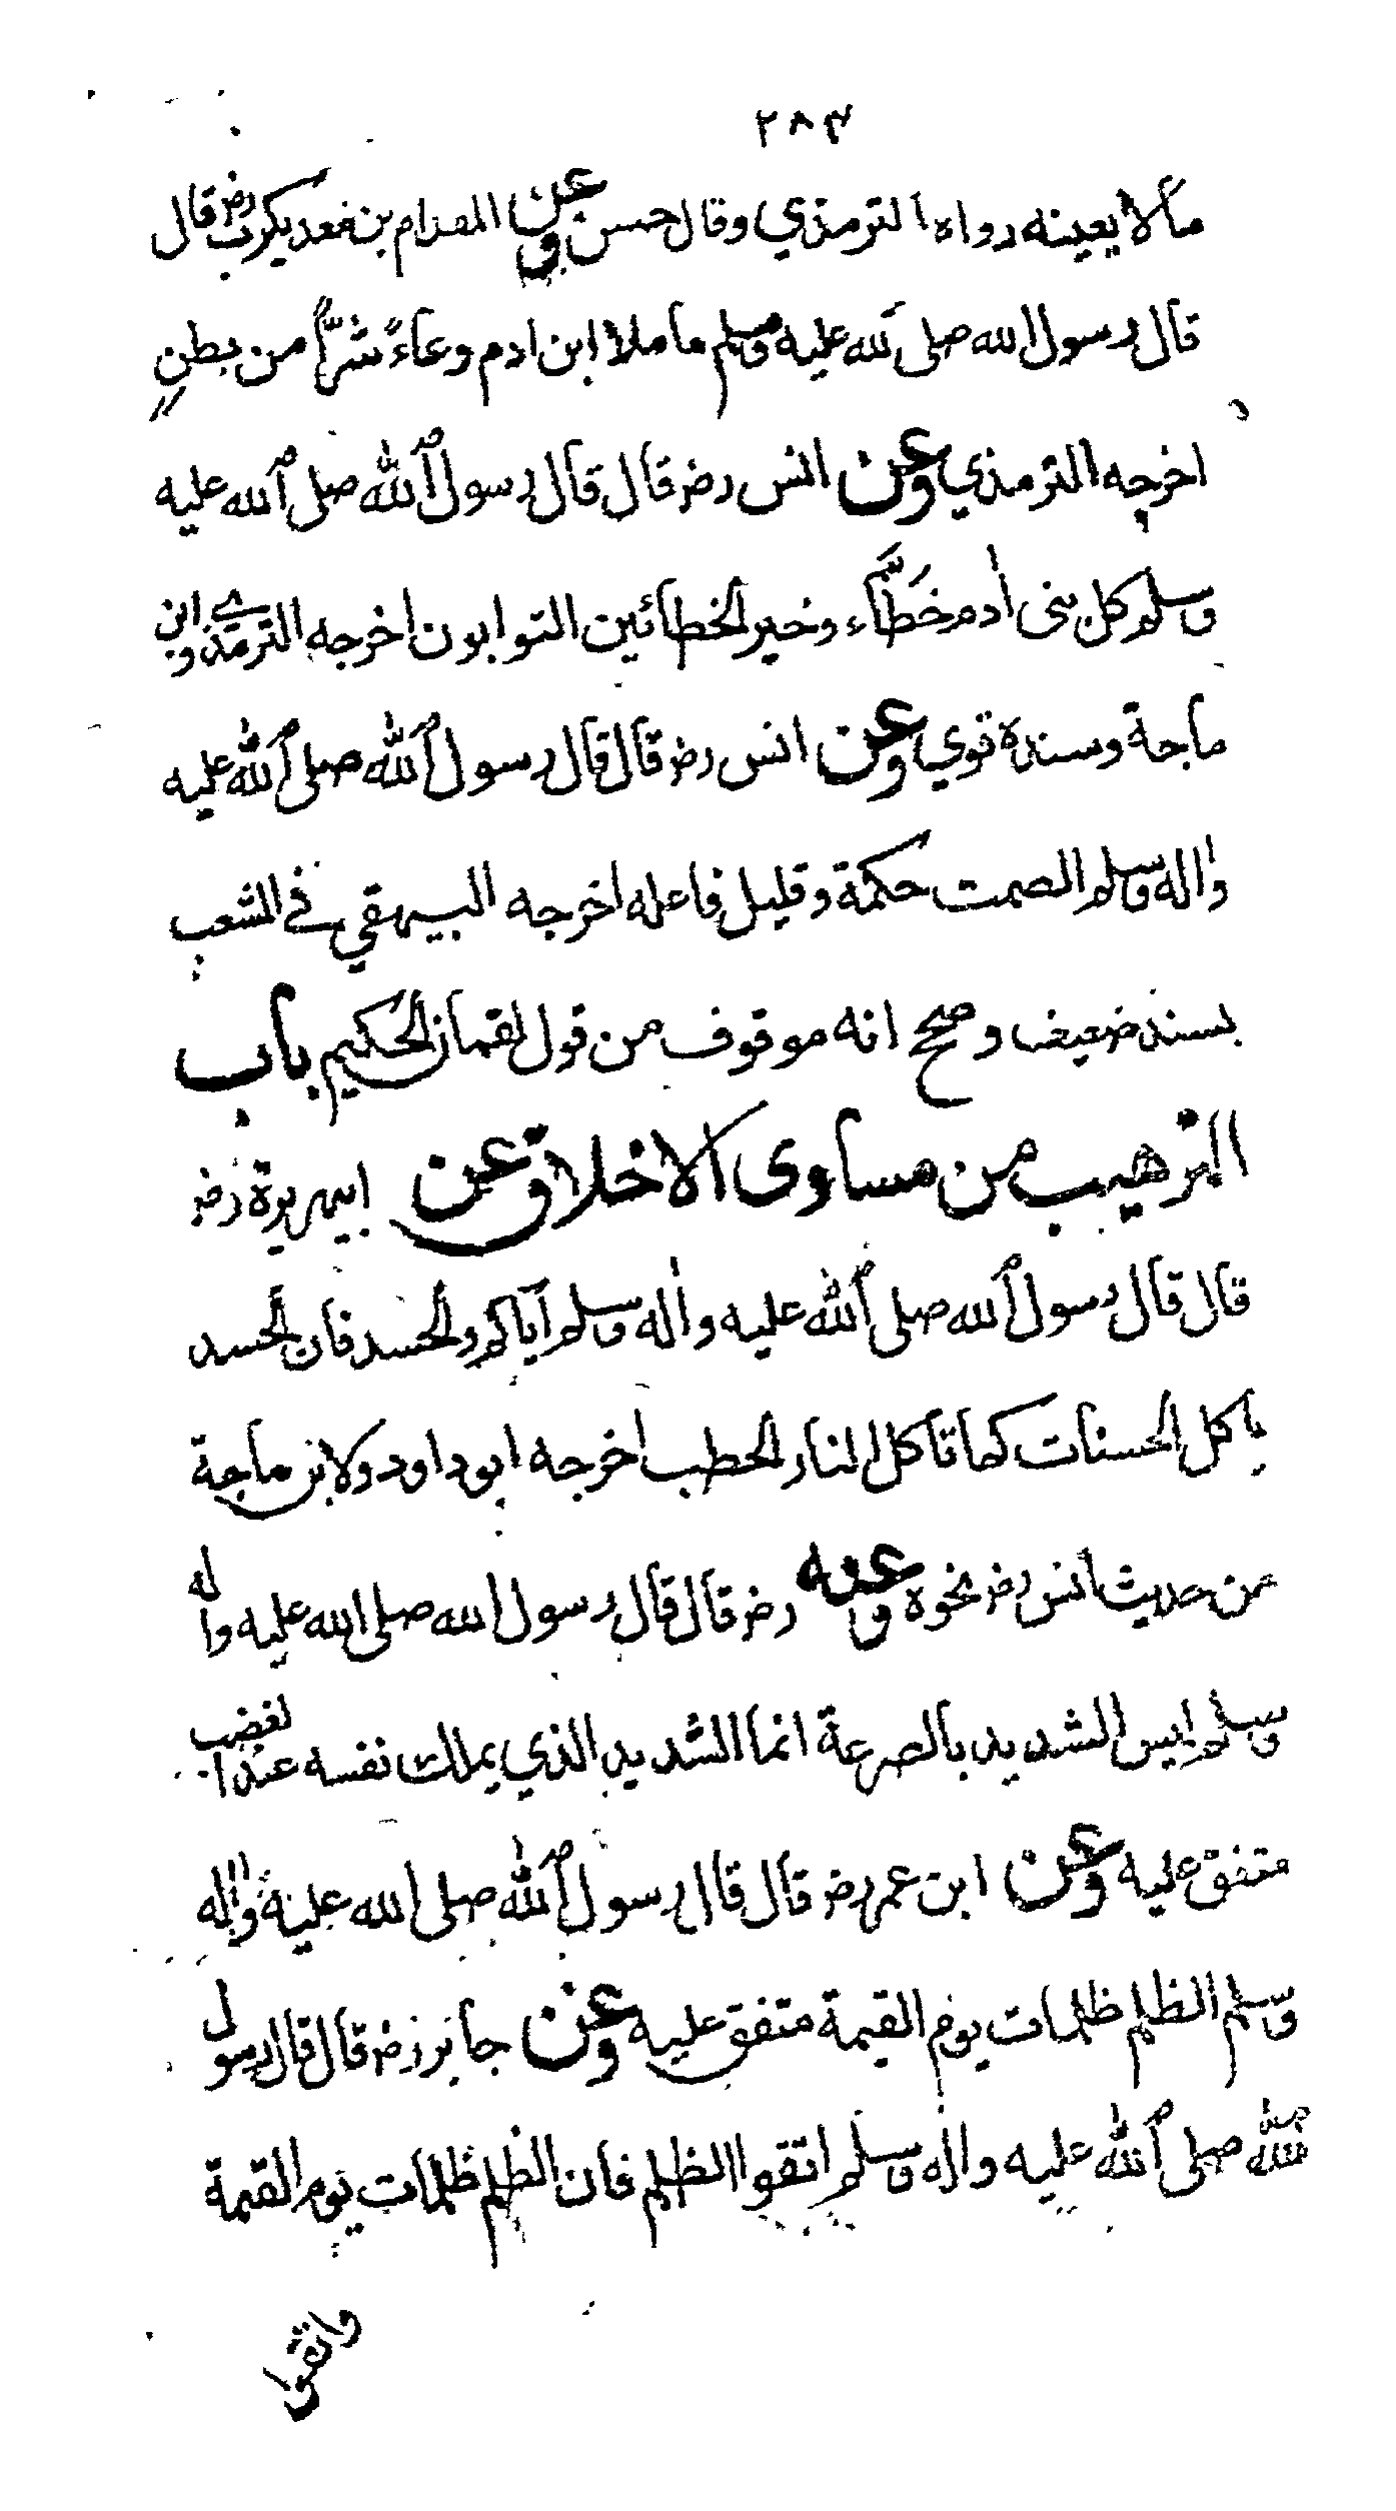 ٢٨٣
مالا يعينه رواه الترمذي وقال حسن وعن المقدام بن معديكرب رضـ قال
قال رسول الله صلى الله عليه وسلم ما ملا ابن ادم وعاءً شرّاً من بطنٍ
اخرجه الترمذي وعن انس رضـ قال قال رسول الله صلى الله عليه
وسلم كل بنى ادم خَطَّاء وخير الخطائين التوابون اخرجه الترمذي وابن
ماجة وسنده قوي وعن انس رضـ قال قال رسول الله صلى الله عليه
واله وسلم الصمت حكمة وقليل فاعله اخرجه البيهقي في الشعب
بسند ضعيف وصحح انه موقوف من قول لقمان الحكيم باب
الترهيب من مساوى الاخلاق عن ابيهريرة رضـ
قال قال رسول الله صلى الله عليه واله وسلم اياكم والحسد فان الحسد
ياكل الحسنات كما تاكل النار الحطب اخرجه ابو داود ولابن ماجة
من حديث انس رضـ نحوه وعنه رضـ قال قال رسول الله صلى الله عليه واله
وسلم ليس الشديد بالصرعة انما الشديد الذي يملك نفسه عند الغضب
متفق عليه وعن ابن عمر رضـ قال قال رسول الله صلى الله عليه واله
وسلم الظلم ظلمات يوم القيمة متفق عليه وعن جابر رضـ قال قال رسول
الله صلى الله عليه واله وسلم اتقوا الظلم فان الظلم ظلمات يوم القيمة
واتقوا